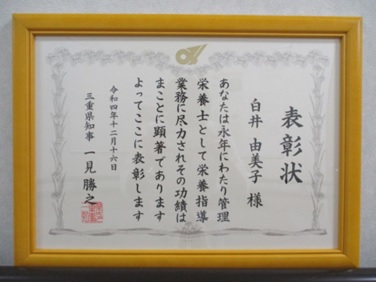 表彰状
白井 由美子 様
あなたは永年にわたり管理
栄養士として栄養指導
業務に尽力されその功績は
まことに顕著であります
よってここに表彰します
令和四年十二月十六日
三重県知事 一見勝之